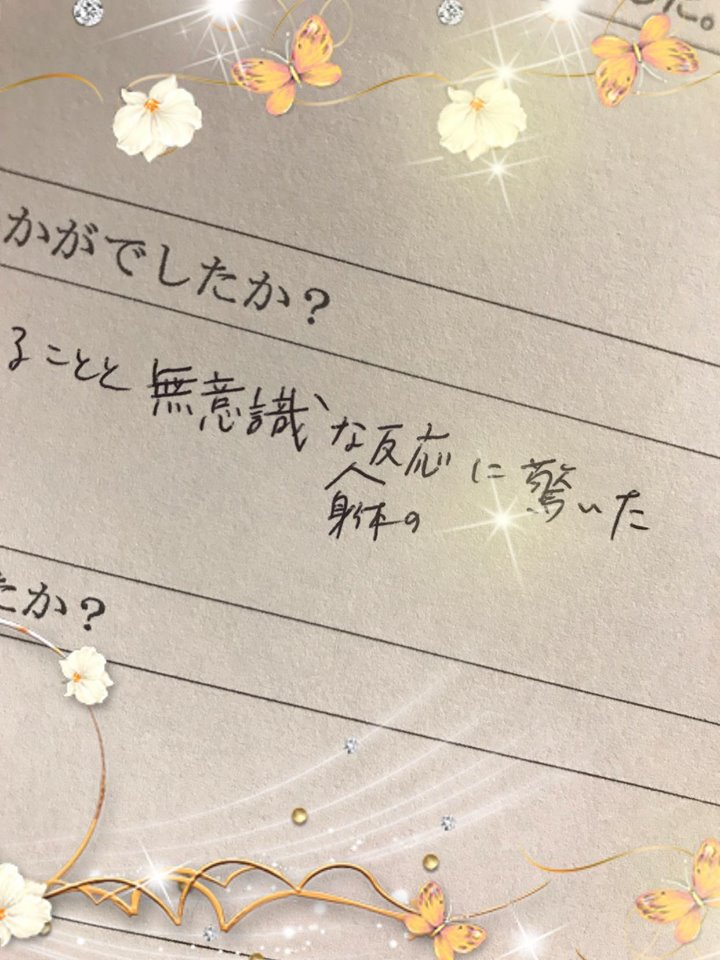 した。
かがでしたか？
ることと無意識な反応に驚いた
身体の
たか？